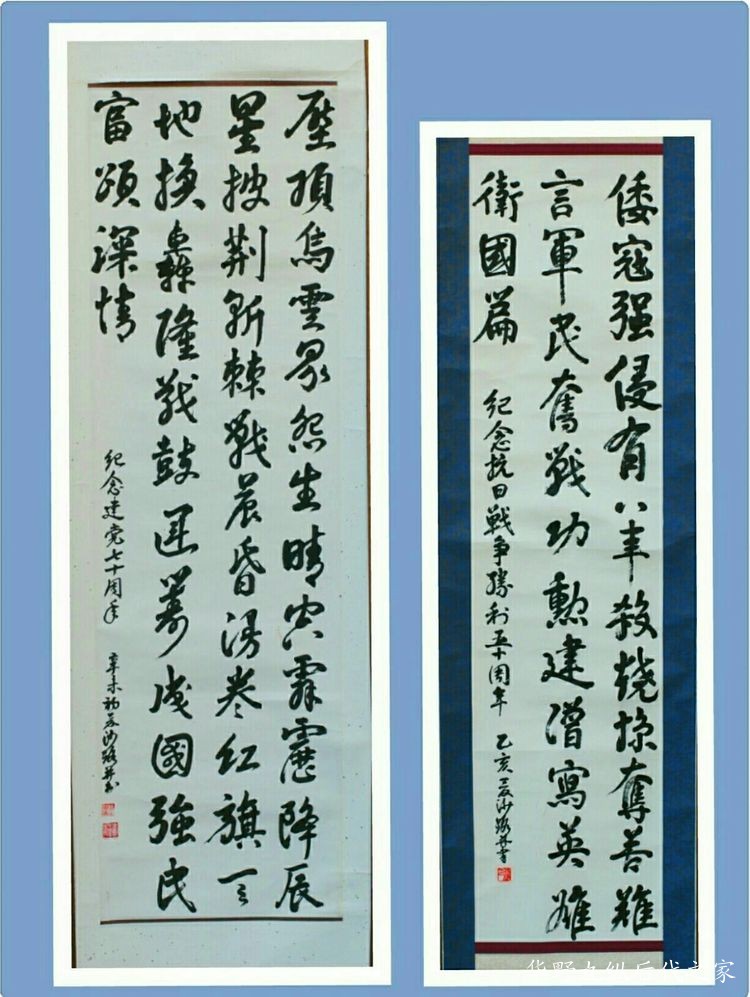 壓頂烏雲眾怨生晴空霹靂降辰
星披荊斬棘戰晨昏漫卷红旗天
地換轟隆戰鼓運籌成國強民
富頌深情
纪念建党七十周年 辛未初夏沙路并书
倭寇强侵有八年殺燒掠奪苦難
言軍民奮戰功勳建譜寫英雄
衛國篇
纪念抗日戰争勝利五十周年 乙亥夏沙路并书
华野九纵后代之家